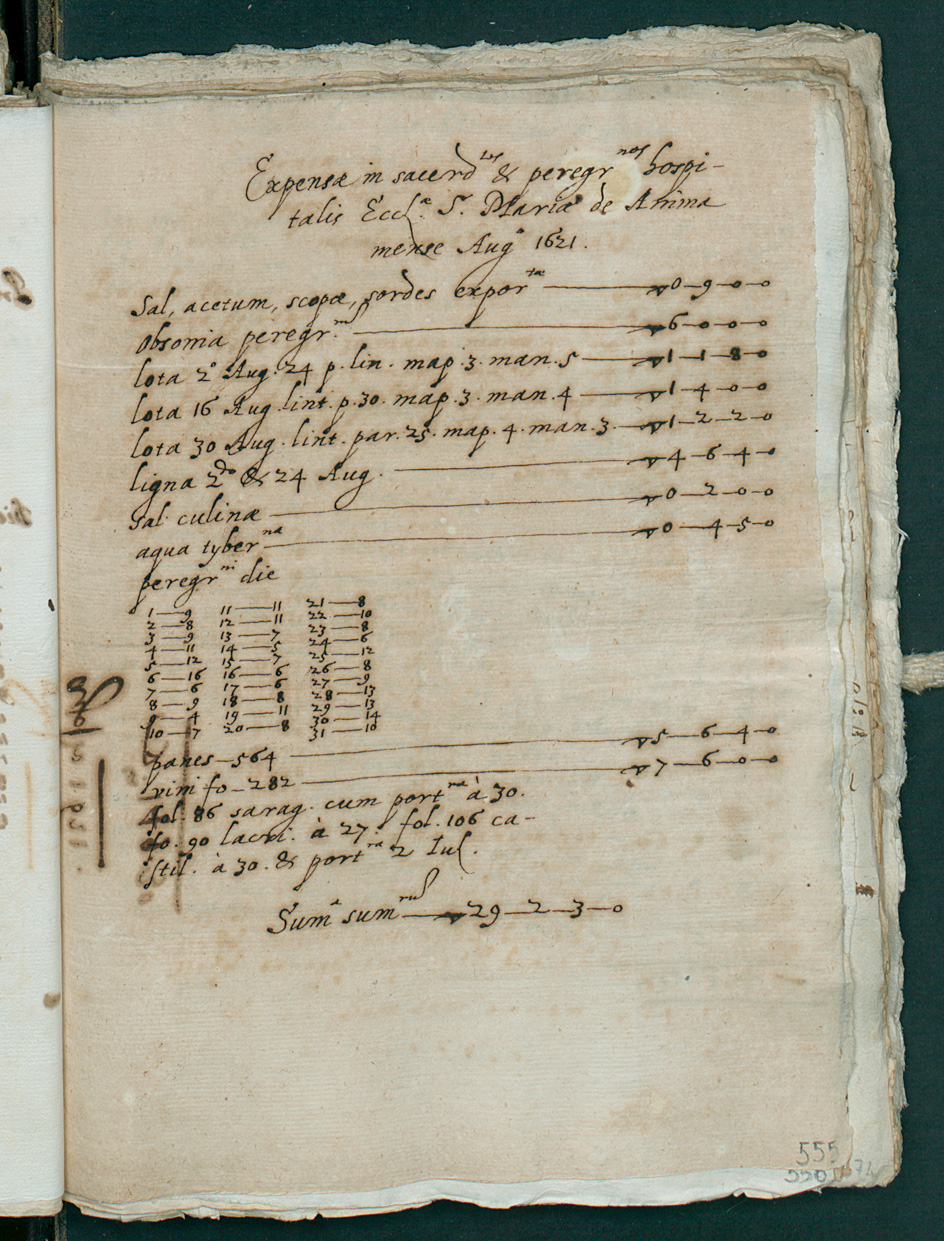 Expensæ in sacerd^tes & peregr^nos hospi-
talis Eccl^æ. S. Mariæ de Anima
mense Aug^o 1621.
Sal, acetum, scopæ, sordes expor^tæ — ▽0—9—0—0
obsonia peregr^m. — ▽6—0—0—0
lota 2^o Aug. 24 p. lin. map. 3. man. 5 — ▽1—1—8—0
lota 16 Aug. lint. p. 30. map. 3. man. 4 — ▽1—4—0—0
lota 30 Aug. lint. par. 25. map. 4. man. 3. — ▽1—2—2—0
ligna 2^do & 24 Aug. — ▽4—6—4—0
Sal culinæ — ▽0—2—0—0
aqua tyber^na — ▽0—4—5—0
peregr^ni die
1—9 11—11 21—8
2—8 12—11 22—10
3—9 13—7 23—8
4—11 14—5 24—6
5—12 15—7 25—12
6—16 16—6 26—8
7—6 17—6 27—9
8—9 18—8 28—13
9—4 19—11 29—13
10—7 20—8 30—14
31—10
panes—564 — ▽5—6—4—0
vini fo—282 — ▽7—6—0—0
fol. 86 sarag. cum port^ra à 30.
fo. 90 lacri. à 27. fol. 106 ca-
stil. à 30. & port^ra 2 Iul.
Sum^a sum^ru — ▽29—2—3—0
555
550